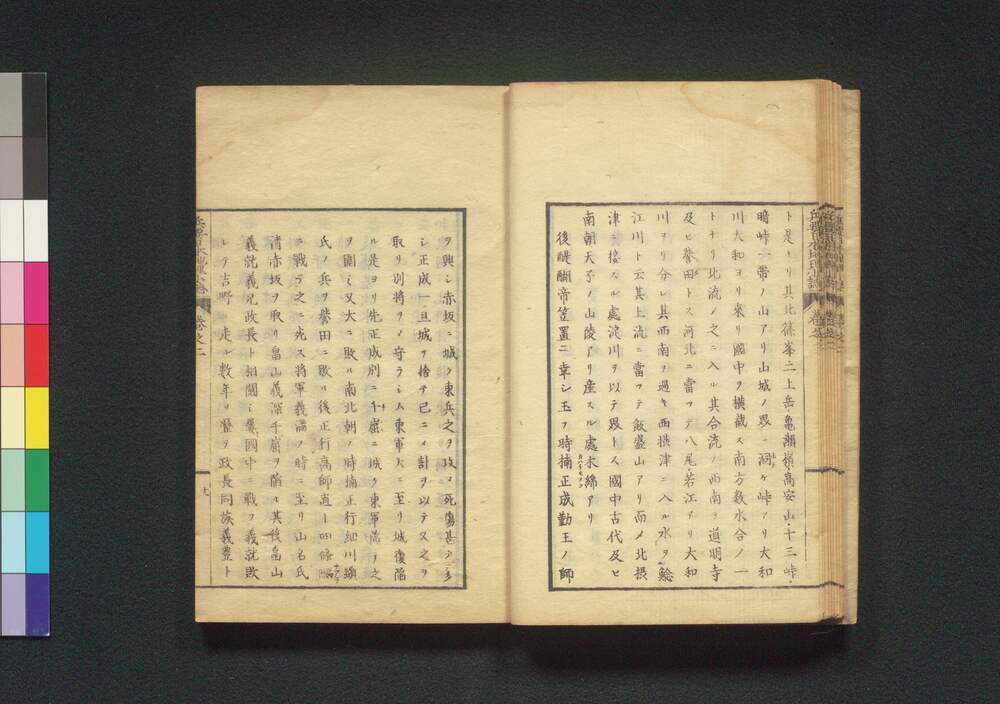 ト是ヨリ其北篠峯二上岳亀瀬嶺高安山十三峠
暗峠一帯ノ山アリ山城ノ界ニ洞ケ峠アリ大和
川大和ヨリ來リ國中ヲ横截ス南方数水合ノ一
トナリ比流ノ之ニ入ル其合流ノ西南ヲ道明寺
及ヒ譽田トス河北ニ當ツテ八尾若江アリ大和
川ヲリ分レ其西南ヲ過キ西摂津ニ入ル水ヲ鯰
江川ト云其上流ニ當ツテ飯盛山アリ而〆北摂
津ニ接スル處淀川ヲ以テ界トス國中古代及ヒ
南朝天子ノ山陵アリ産スル處木綿アリ
後醍醐帝笠置ニ幸シ玉フ時楠正成勤王ノ師
ヲ興シ赤坂ニ城ク東兵之ヲ攻メ死傷甚タ多
シ正成一旦城ヲ捨テ已ニ〆計ヲ以テ又之ヲ
取リ別将ヲ〆守ラシム東軍大ニ至リ城復陥
ル是ヨリ先正成別ニ千嶽ニ城ク東軍之
ヲ圍ミ又大ニ敗ル南北朝ノ時楠正行細川顕
氏ノ兵ヲ譽田ニ敗ル後正行高師直ト四條畷
ニ戰ラ之ニ死ス将軍義満ノ時ニ至リ山名氏
清赤坂ヲ取リ畠山義深千嶽ヲ陥ル其後畠山
義就義兄政長ト相鬩キ國中ニ戰フ義就敗
レテ吉野ニ走ル数年ヲ歴テ政長同族義豊ト
兵要日本地理小誌 巻之二
九